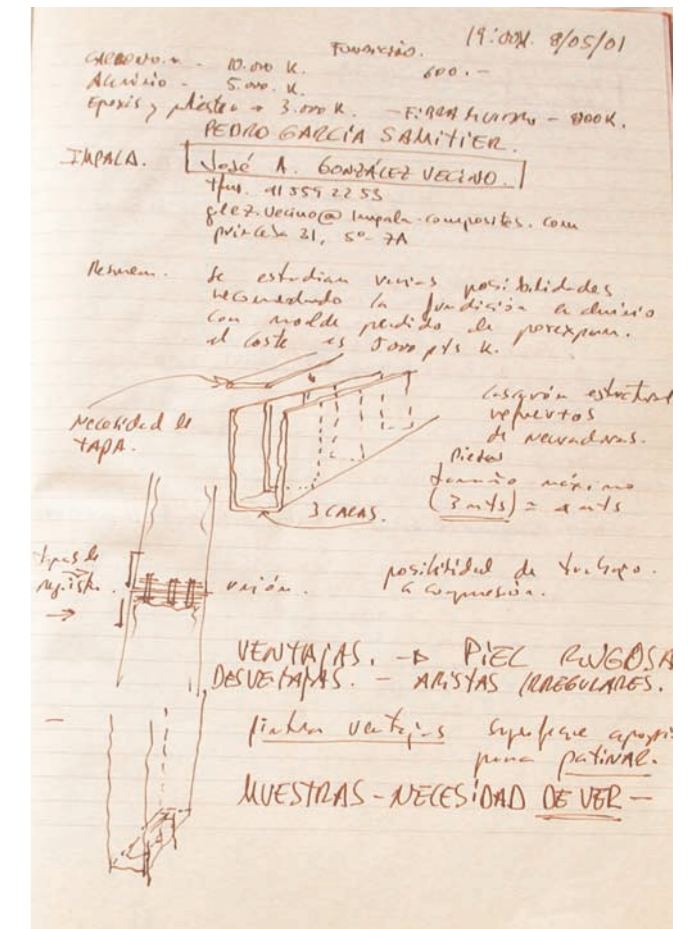 19:00H. 8/05/01
Fundición.
CARBONO - 10.000 K. 600.-
Aluminio - 5.000. K.
Epoxis y plástico → 3.000 K. - FIBRA - 800K.
PEDRO GARCÍA SAMITIER.
IMPALA. José A. GONZÁLEZ VECINO.
tfno. 91 559 22 53
glez.vecino@impala-composites.com
princesa 31, 5º- 7A
Resumen. Se estudian varias posibilidades
recomendando la fundición de aluminio
con molde perdido de porexpan.
el coste es 5000 pts K.
Necesidad de
TAPA.
casquón estructural
refuertos
de nervaduras.
Piezas
tamaño máximo
(3 mts) = 4 mts
3 CARAS.
tapas de
registro.
unión.
posibilidad de trabajo.
a compresión.
VENTAJAS. → PIEL RUGOSA
DESVENTAJAS. - ARISTAS IRREGULARES.
pintura ventajas
para patinar.
MUESTRAS - NECESIDAD DE VER -